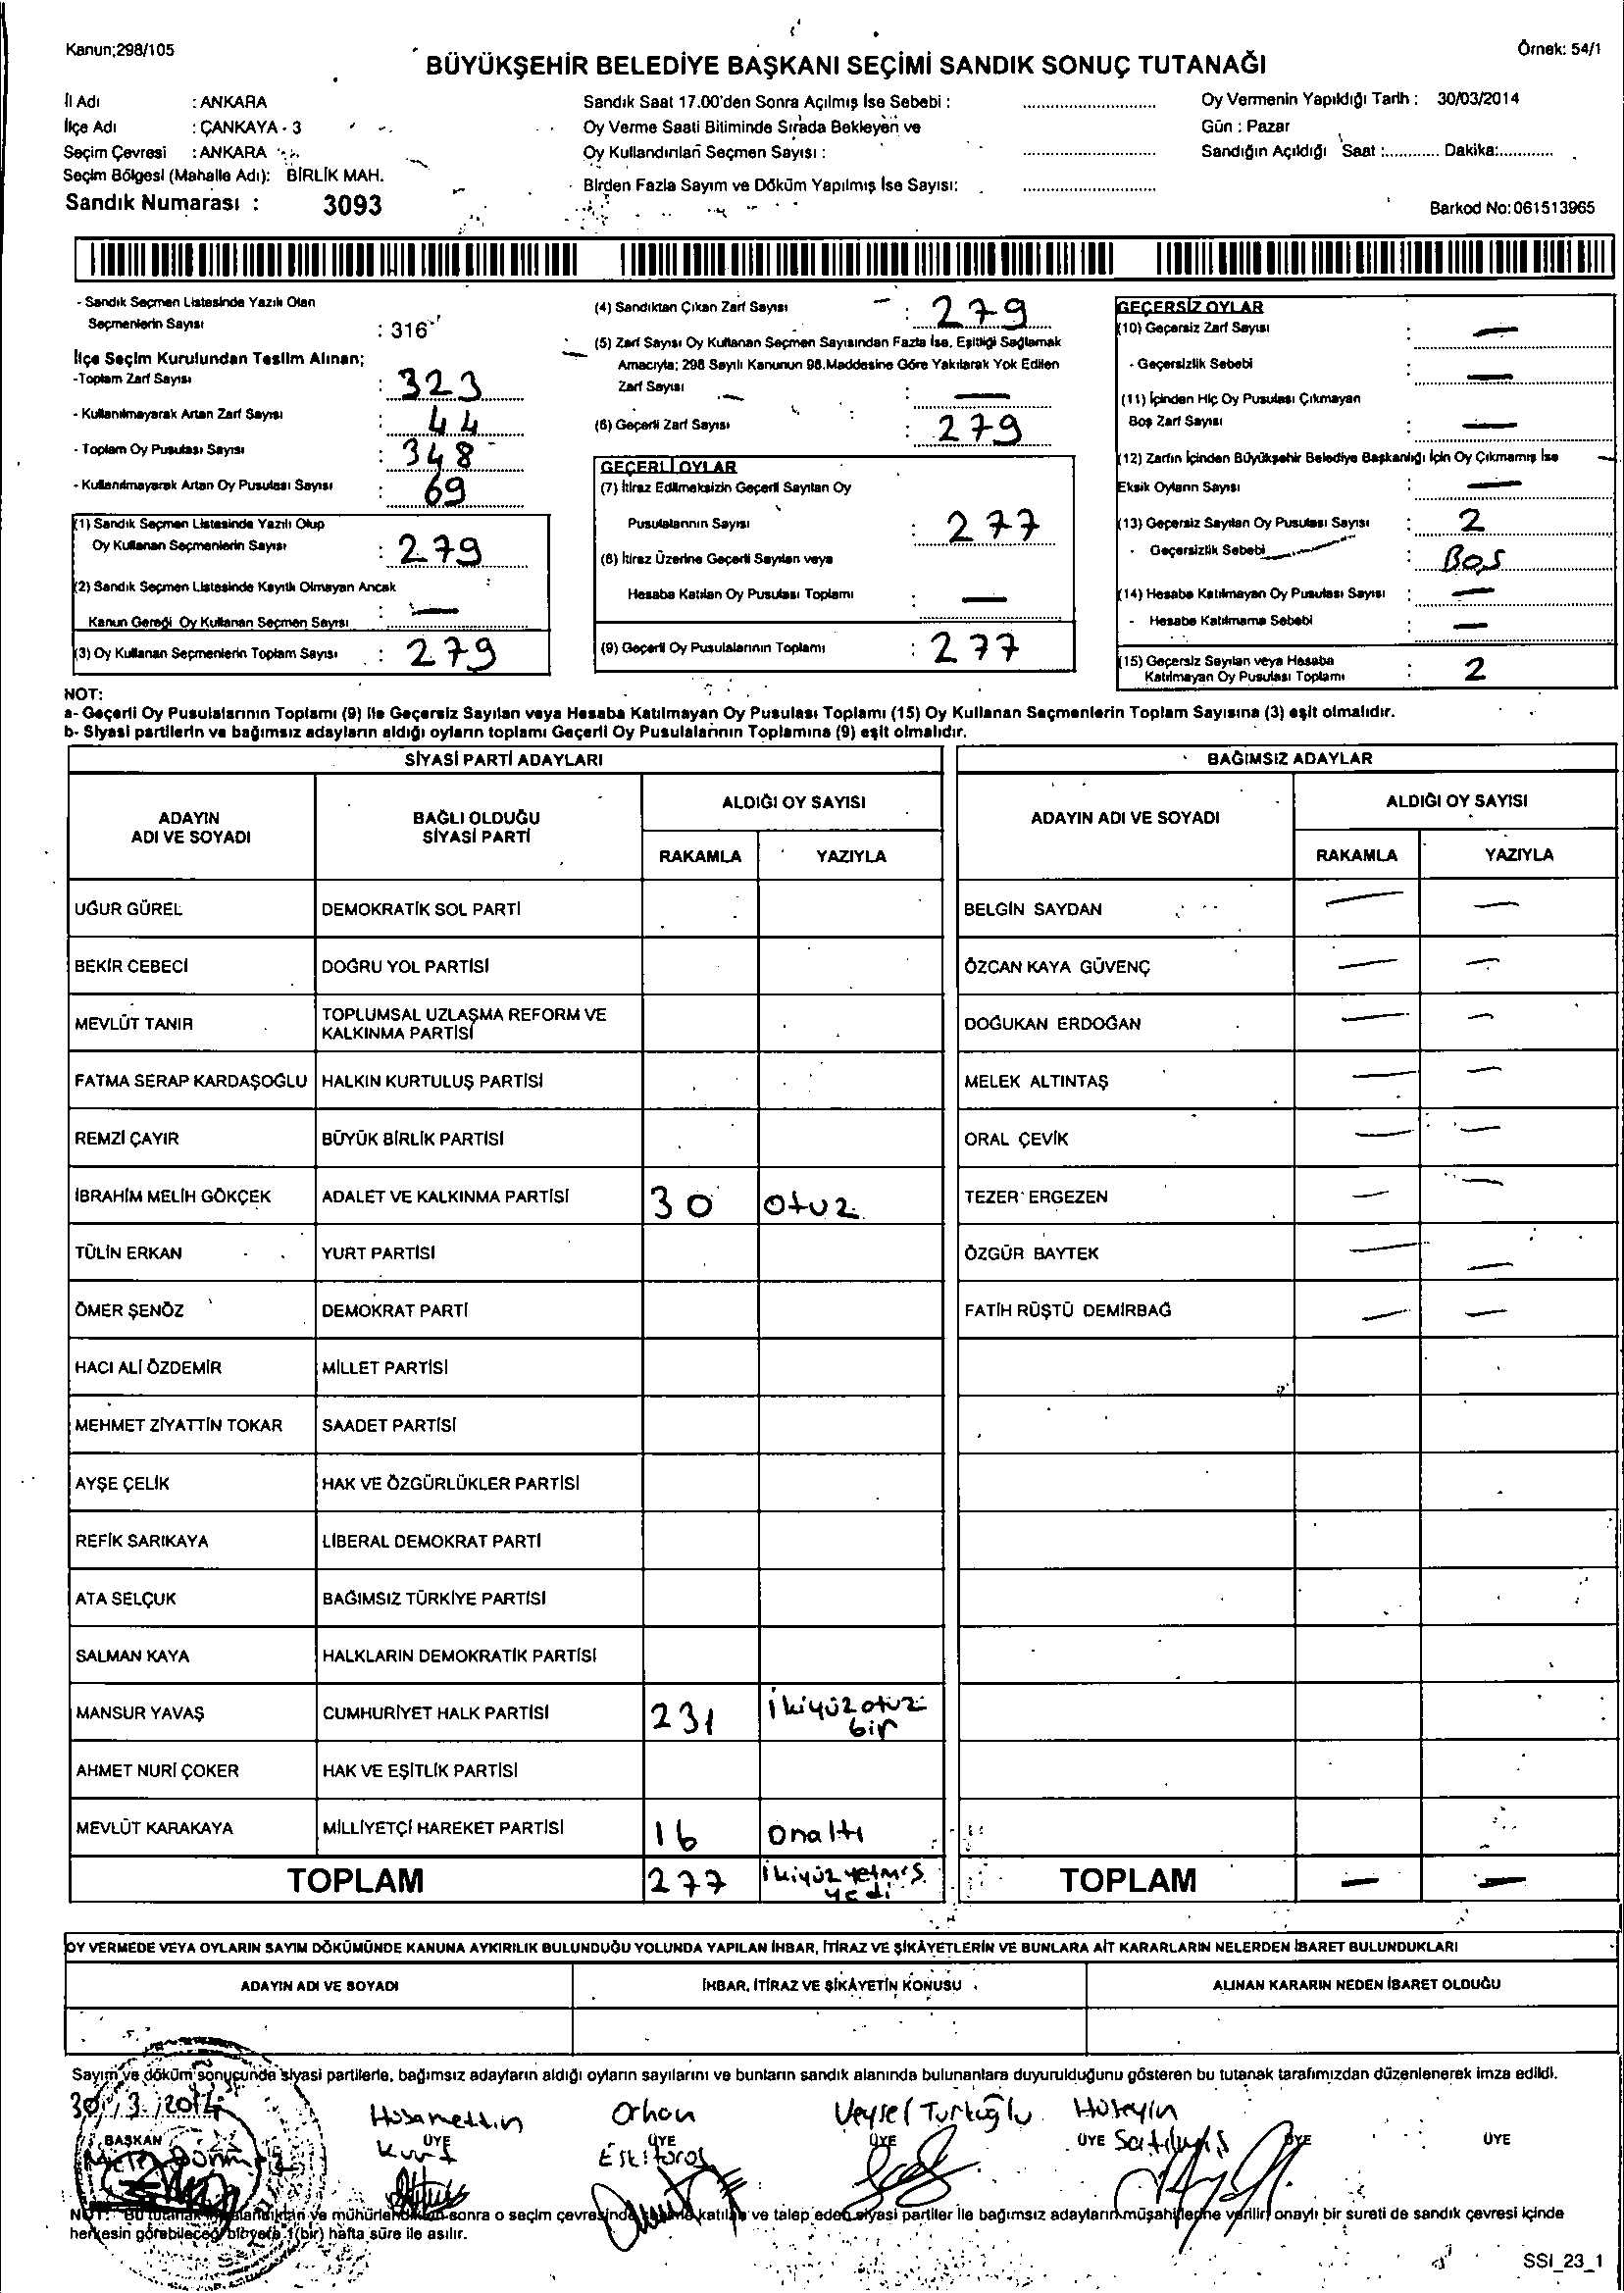 Kanun;298/105
Örnek: 54/1
BÜYÜKŞEHİR BELEDİYE BAŞKANI SEÇİMİ SANDIK SONUÇ TUTANAĞI
İl Adı : ANKARA
İlçe Adı : ÇANKAYA - 3
Seçim Çevresi : ANKARA
Seçim Bölgesi (Mahalle Adı): BİRLİK MAH.
Sandık Numarası : 3093
Sandık Saat 17.00'den Sonra Açılmış İse Sebebi :
Oy Verme Saati Bitiminde Sırada Bekleyen ve
Oy Kullandırılan Seçmen Sayısı :
Birden Fazla Sayım ve Döküm Yapılmış İse Sayısı:
Oy Vermenin Yapıldığı Tarih : 30/03/2014
Gün : Pazar
Sandığın Açıldığı Saat :............ Dakika:............
Barkod No:061513965
- Sandık Seçmen Listesinde Yazılı Olan
Seçmenlerin Sayısı : 316
İlçe Seçim Kurulundan Teslim Alınan;
-Toplam Zarf Sayısı : 323
- Kullanılmayarak Artan Zarf Sayısı : 44
- Toplam Oy Pusulası Sayısı : 348
- Kullanılmayarak Artan Oy Pusulası Sayısı : 69
(1) Sandık Seçmen Listesinde Yazılı Olup
Oy Kullanan Seçmenlerin Sayısı : 279
(2) Sandık Seçmen Listesinde Kayıtlı Olmayan Ancak
Kanun Gereği Oy Kullanan Seçmen Sayısı : —
(3) Oy Kullanan Seçmenlerin Toplam Sayısı : 279
(4) Sandıktan Çıkan Zarf Sayısı : 279
(5) Zarf Sayısı Oy Kullanan Seçmen Sayısından Fazla İse, Eşitliği Sağlamak
Amacıyla; 298 Sayılı Kanunun 98.Maddesine Göre Yakılarak Yok Edilen
Zarf Sayısı : —
(6) Geçerli Zarf Sayısı : 279
GEÇERLİ OYLAR
(7) İtiraz Edilmeksizin Geçerli Sayılan Oy
Pusulalarının Sayısı : 277
(8) İtiraz Üzerine Geçerli Sayılan veya
Hesaba Katılan Oy Pusulası Toplamı : —
(9) Geçerli Oy Pusulalarının Toplamı : 277
GEÇERSİZ OYLAR
(10) Geçersiz Zarf Sayısı : —
- Geçersizlik Sebebi : —
(11) İçinden Hiç Oy Pusulası Çıkmayan
Boş Zarf Sayısı : —
(12) Zarfın İçinden Büyükşehir Belediye Başkanlığı İçin Oy Çıkmamış İse
Eksik Oyların Sayısı : —
(13) Geçersiz Sayılan Oy Pusulası Sayısı : 2
- Geçersizlik Sebebi : BOŞ
(14) Hesaba Katılmayan Oy Pusulası Sayısı : —
- Hesaba Katılmama Sebebi : —
(15) Geçersiz Sayılan veya Hesaba
Katılmayan Oy Pusulası Toplamı : 2
NOT:
a- Geçerli Oy Pusulalarının Toplamı (9) ile Geçersiz Sayılan veya Hesaba Katılmayan Oy Pusulası Toplamı (15) Oy Kullanan Seçmenlerin Toplam Sayısına (3) eşit olmalıdır.
b- Siyasi partilerin ve bağımsız adayların aldığı oyların toplamı Geçerli Oy Pusulalarının Toplamına (9) eşit olmalıdır.
SİYASİ PARTİ ADAYLARI
BAĞIMSIZ ADAYLAR
ADAYIN ADI VE SOYADI
BAĞLI OLDUĞU SİYASİ PARTİ
ALDIĞI OY SAYISI
RAKAMLA YAZIYLA
ADAYIN ADI VE SOYADI
ALDIĞI OY SAYISI
RAKAMLA YAZIYLA
UĞUR GÜREL DEMOKRATİK SOL PARTİ BELGİN SAYDAN — —
BEKİR CEBECİ DOĞRU YOL PARTİSİ ÖZCAN KAYA GÜVENÇ — —
MEVLÜT TANIR TOPLUMSAL UZLAŞMA REFORM VE KALKINMA PARTİSİ DOĞUKAN ERDOĞAN — —
FATMA SERAP KARDAŞOĞLU HALKIN KURTULUŞ PARTİSİ MELEK ALTINTAŞ — —
REMZİ ÇAYIR BÜYÜK BİRLİK PARTİSİ ORAL ÇEVİK — —
İBRAHİM MELİH GÖKÇEK ADALET VE KALKINMA PARTİSİ 30 otuz TEZER ERGEZEN — —
TÜLİN ERKAN YURT PARTİSİ ÖZGÜR BAYTEK — —
ÖMER ŞENÖZ DEMOKRAT PARTİ FATİH RÜŞTÜ DEMİRBAĞ — —
HACI ALİ ÖZDEMİR MİLLET PARTİSİ
MEHMET ZİYATTİN TOKAR SAADET PARTİSİ
AYŞE ÇELİK HAK VE ÖZGÜRLÜKLER PARTİSİ
REFİK SARIKAYA LİBERAL DEMOKRAT PARTİ
ATA SELÇUK BAĞIMSIZ TÜRKİYE PARTİSİ
SALMAN KAYA HALKLARIN DEMOKRATİK PARTİSİ
MANSUR YAVAŞ CUMHURİYET HALK PARTİSİ 231 ikiyüzotuz bir
AHMET NURİ ÇOKER HAK VE EŞİTLİK PARTİSİ
MEVLÜT KARAKAYA MİLLİYETÇİ HAREKET PARTİSİ 16 onaltı
TOPLAM 277 ikiyüz yetmiş yedi TOPLAM — —
OY VERMEDE VEYA OYLARIN SAYIM DÖKÜMÜNDE KANUNA AYKIRILIK BULUNDUĞU YOLUNDA YAPILAN İHBAR, İTİRAZ VE ŞİKÂYETLERİN VE BUNLARA AİT KARARLARIN NELERDEN İBARET BULUNDUKLARI
ADAYIN ADI VE SOYADI İHBAR, İTİRAZ VE ŞİKÂYETİN KONUSU ALINAN KARARIN NEDEN İBARET OLDUĞU
Sayım ve döküm sonucunda siyasi partilerle, bağımsız adayların aldığı oyların sayılarını ve bunların sandık alanında bulunanlara duyurulduğunu gösteren bu tutanak tarafımızdan düzenlenerek imza edildi.
30/3/2014
Hüsamettin Orhan Veysel Türkoğlu Hüseyin
BAŞKAN ÜYE ÜYE ÜYE ÜYE ÜYE ÜYE
Kurt
NOT: Bu tutanak ve sonra o seçim çevresinde katılan ve talep eden siyasi partiler ile bağımsız adayların müşahitlerine verilir, onaylı bir sureti de sandık çevresi içinde
herkesin görebileceği bir yere 1(bir) hafta süre ile asılır.
SSI_23_1